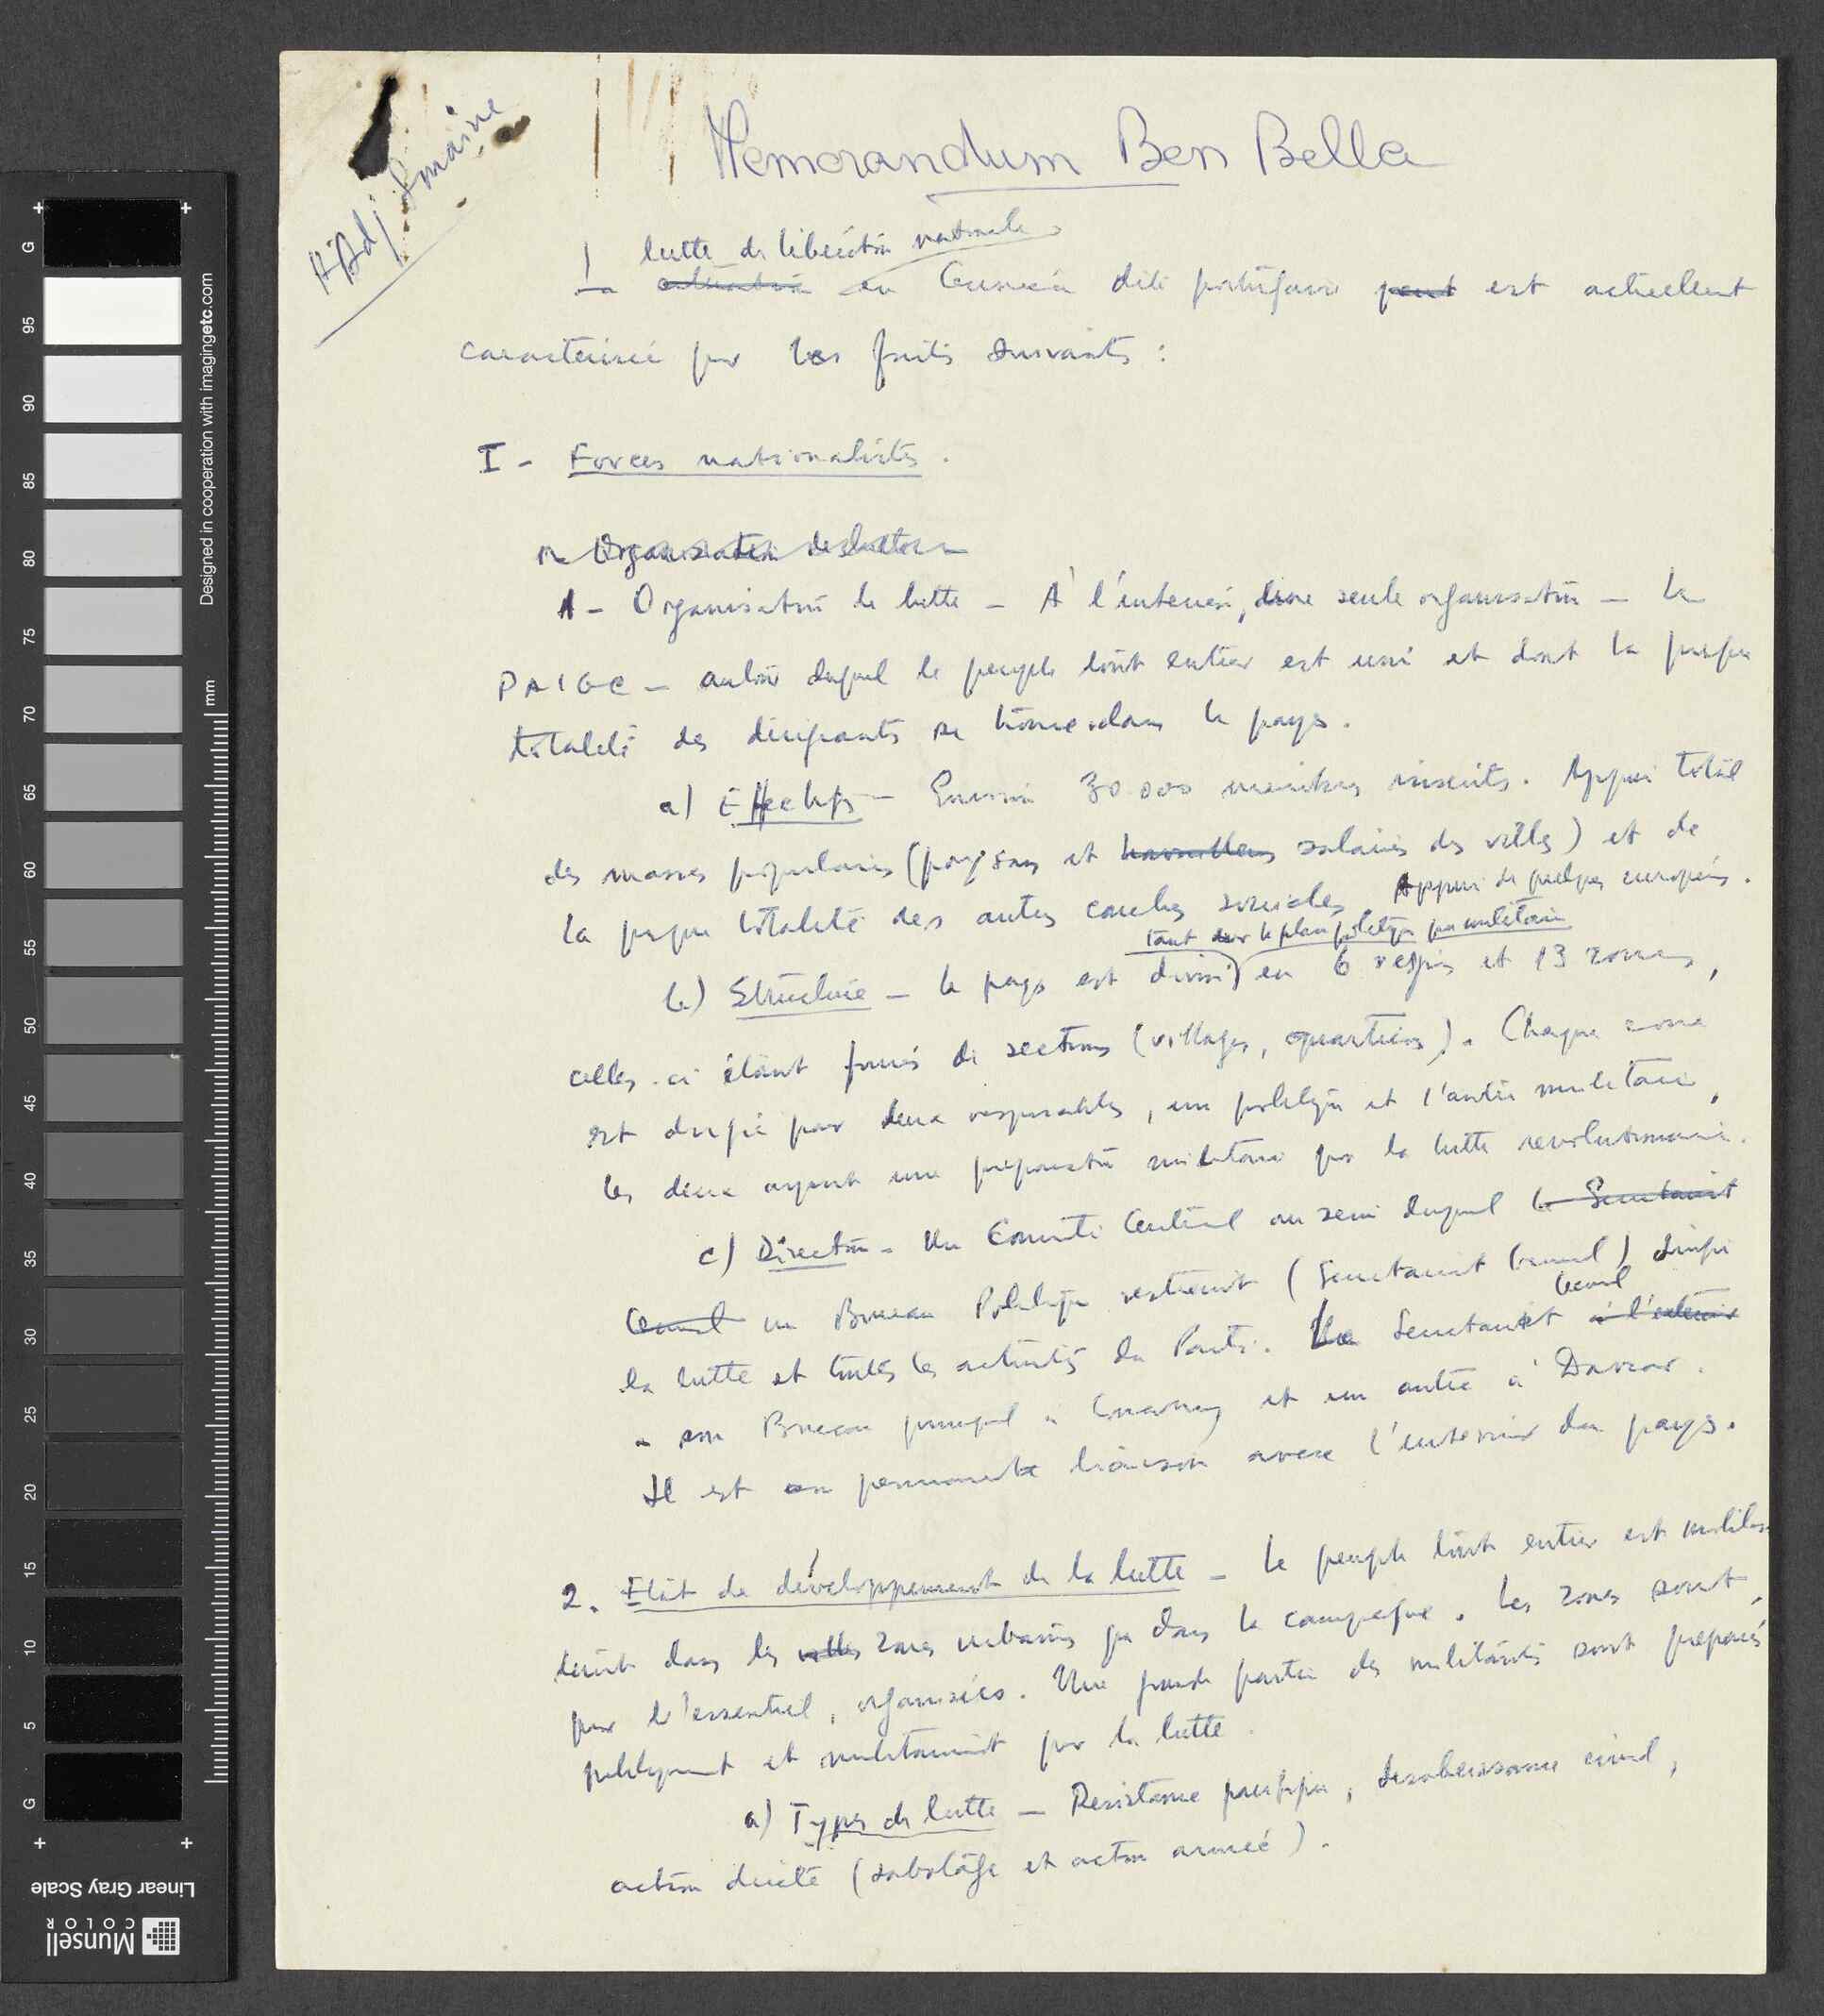 HAdj Smaine
Memorandum Ben Bella
lutte de libération nationale
La situation en Guinée dite portugaise peut est actuellement
caractérisée par les faits suivants :
I - Forces nationalistes.
Organisation de lutte
1 - Organisation de lutte - A l'intérieur, une seule organisation - le
PAIGC - autour duquel le peuple tout entier est uni et dont la presque
totalité des dirigeants se trouve dans le pays.
a) Effectifs - Environ 30 000 membres inscrits. Appui total
des masses populaires (paysans et travailleurs salariés des villes) et de
la presque totalité des autres couches sociales. Appui de quelques européens.
tant sur le plan politique que militaire
b) Structure - le pays est divisé en 6 régions et 13 zones,
celles-ci étant formées de sections (villages, quartiers). Chaque zone
est dirigée par deux responsables, un politique et l'autre militaire,
les deux ayant une préparation militaire pour la lutte révolutionnaire.
c) Direction - Un Comité Central au sein duquel le Secrétariat
Général un Bureau Politique restreint (Secrétariat Général) dirige
la lutte et toutes les activités du Parti. Le Secrétariat Général à l'extérieur
a son Bureau principal à Conakry et un autre à Dakar.
Il est en permanente liaison avec l'intérieur du pays.
2. Etat de développement de la lutte - Le peuple tout entier est mobilisé
tant dans les villes zones urbaines que dans la campagne. Les zones sont,
pour l'essentiel, organisées. Une grande partie des militants sont préparés
politiquement et militairement pour la lutte.
a) Types de lutte - Résistance pacifique, désobéissance civile,
action directe (sabotage et action armée).
G 95 90 85 80 75 70 65 60 55 50 45 40 35 30 25 20 15 10 5 G
Designed in cooperation with imagingetc.com
mm
Linear Gray Scale
Munsell
COLOR